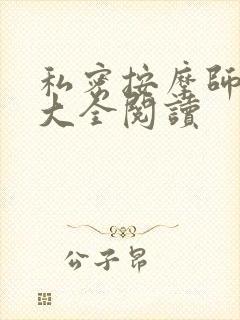 私密按摩師
大全閱讀
公子昂